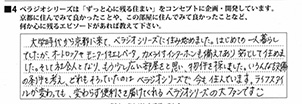 ■4 ベラジオシリーズは「ずっと心に残る住まい」をコンセプトに企画・開発しています。
京都に住んでみて良かったことや、この部屋に住んでみて良かったことなど、
何か心に残るエピソードがあれば教えて下さい。
大学時代から京都に来て、ベラジオシリーズに住み始めました。はじめての一人暮らし
でしたが、オートロックやモニター付インターホン、カメラ付インターホンも備えてあり安心して住めまし
た。そして社会人となり、もう少し広いお部屋をと思い、物件を探しました。いろんな設備
の条件を考え、どれもそろっていたのはベラジオシリーズで今も住んでいます。ライフスタイル
が変わっても、変わらず便利さを届けてくれるベラジオシリーズの大ファンです♡